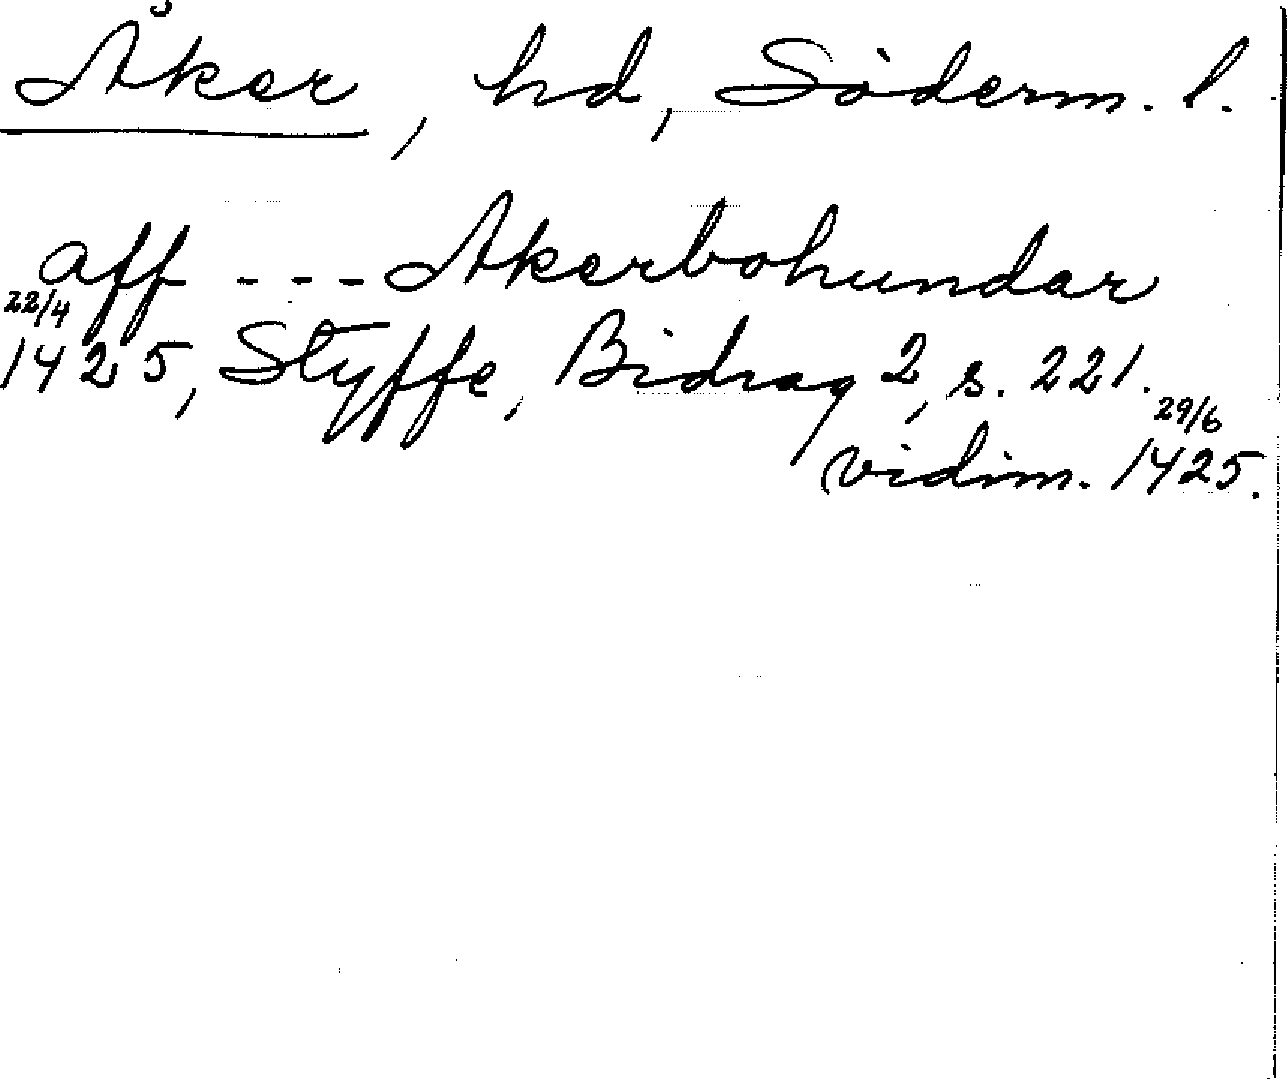 Åker, hd, Söderm. l.
aff --- Akerbohundar
22/4
1425, Styffe, Bidrag 2, s. 221.
29/6
vidim. 1425.